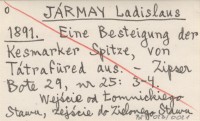 o JÁRMAY Ladislaus
1891. Eine Besteigung der
Kesmarker Spitze, von
Tátrafüred aus. – Zipser
Bote 29, nr 25: 3-4.
Wejście od Łomnickiego
Stawu, zejście do Zielonego Stawu.